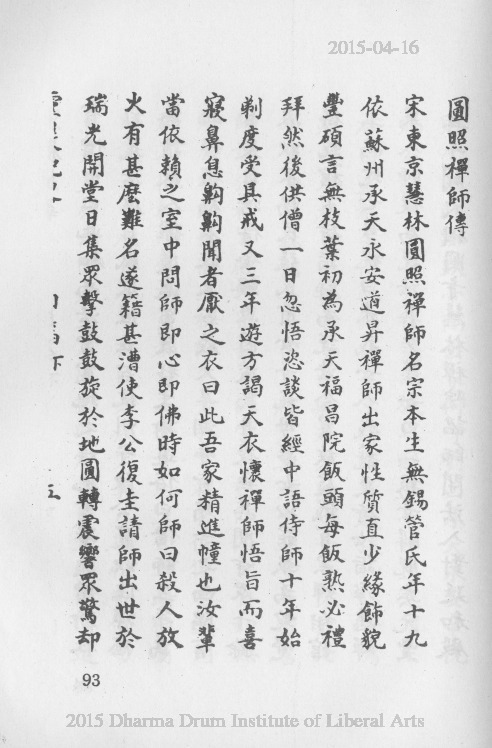 2015-04-16
圓照禪師傳
宋東京慧林圓照禪師名宗本生無錫管氏年十九
依蘇州承天永安道昇禪師出家性質直少緣飾貌
豐碩言無枝葉初為承天福昌院飯頭每飯熟必禮
拜然後供僧一日忽悟恣談皆經中語侍師十年始
剃度受具戒又三年遊方謁天衣懷禪師悟旨而喜
寢鼻息齁齁聞者厭之衣曰此吾家精進幢也汝輩
當依賴之室中問師即心即佛時如何師曰殺人放
火有甚麼難名遂籍甚漕使李公復圭請師出世於
瑞光開堂日集眾擊鼓鼓旋於地圓轉震響眾驚却
93
2015 Dharma Drum Institute of Liberal Arts